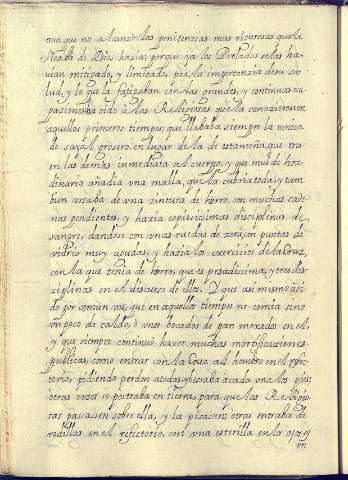 aunque no alcanzè las penitencias mas rigurosas que la
Sierba de Dios hazia; porque ya los Prelados se las ha-
uian mitigado, y limitado, por la importanzia de su sa-
lud, y lo que la fatigaban con las grandes, y continuas ocu
pasiones: ha oido à las Religiosas que la conocieron en
aquellos primeros tiempos, que llebaba siempre la tunica
de sayal grosero, en lugar de la de estameña, que tra-
en las demàs inmediata al cuerpo; y que mui de hor-
dinario añadia vna malla, que la cubria toda; y tam-
bien vsaba de vna zintura de hierro, con muchas cade-
nas pendientes, y hazia copiosissimas disciplinas de
sangre, dandose con vnas ruedas de corcho, puntas de
vidrio muy agudas; y hazia los exercicios de la Cruz,
con la que tenia de hierro, que es pesadissima, y tres dis-
ziplinas en el discurso de ellos. Y que asimismo oì
do por comun voz, que en aquellos tiempos no comia sino
vn poco de caldo, ò vnos bocados de pan mojados en èl,
y que siempre continuò hazer muchas mortificaciones
publicas, como entrar con la Cruz al hombro en el refec-
torio, pidiendo perdon à todas, y besaba à cada vna los pies;
otras vezes se postraba en tierra, para que las Religio-
sas passassen sobre ella, y la pisassen; otras entraba de
rodillas en el refectorio, con vna esterilla en los ojos, y
vn